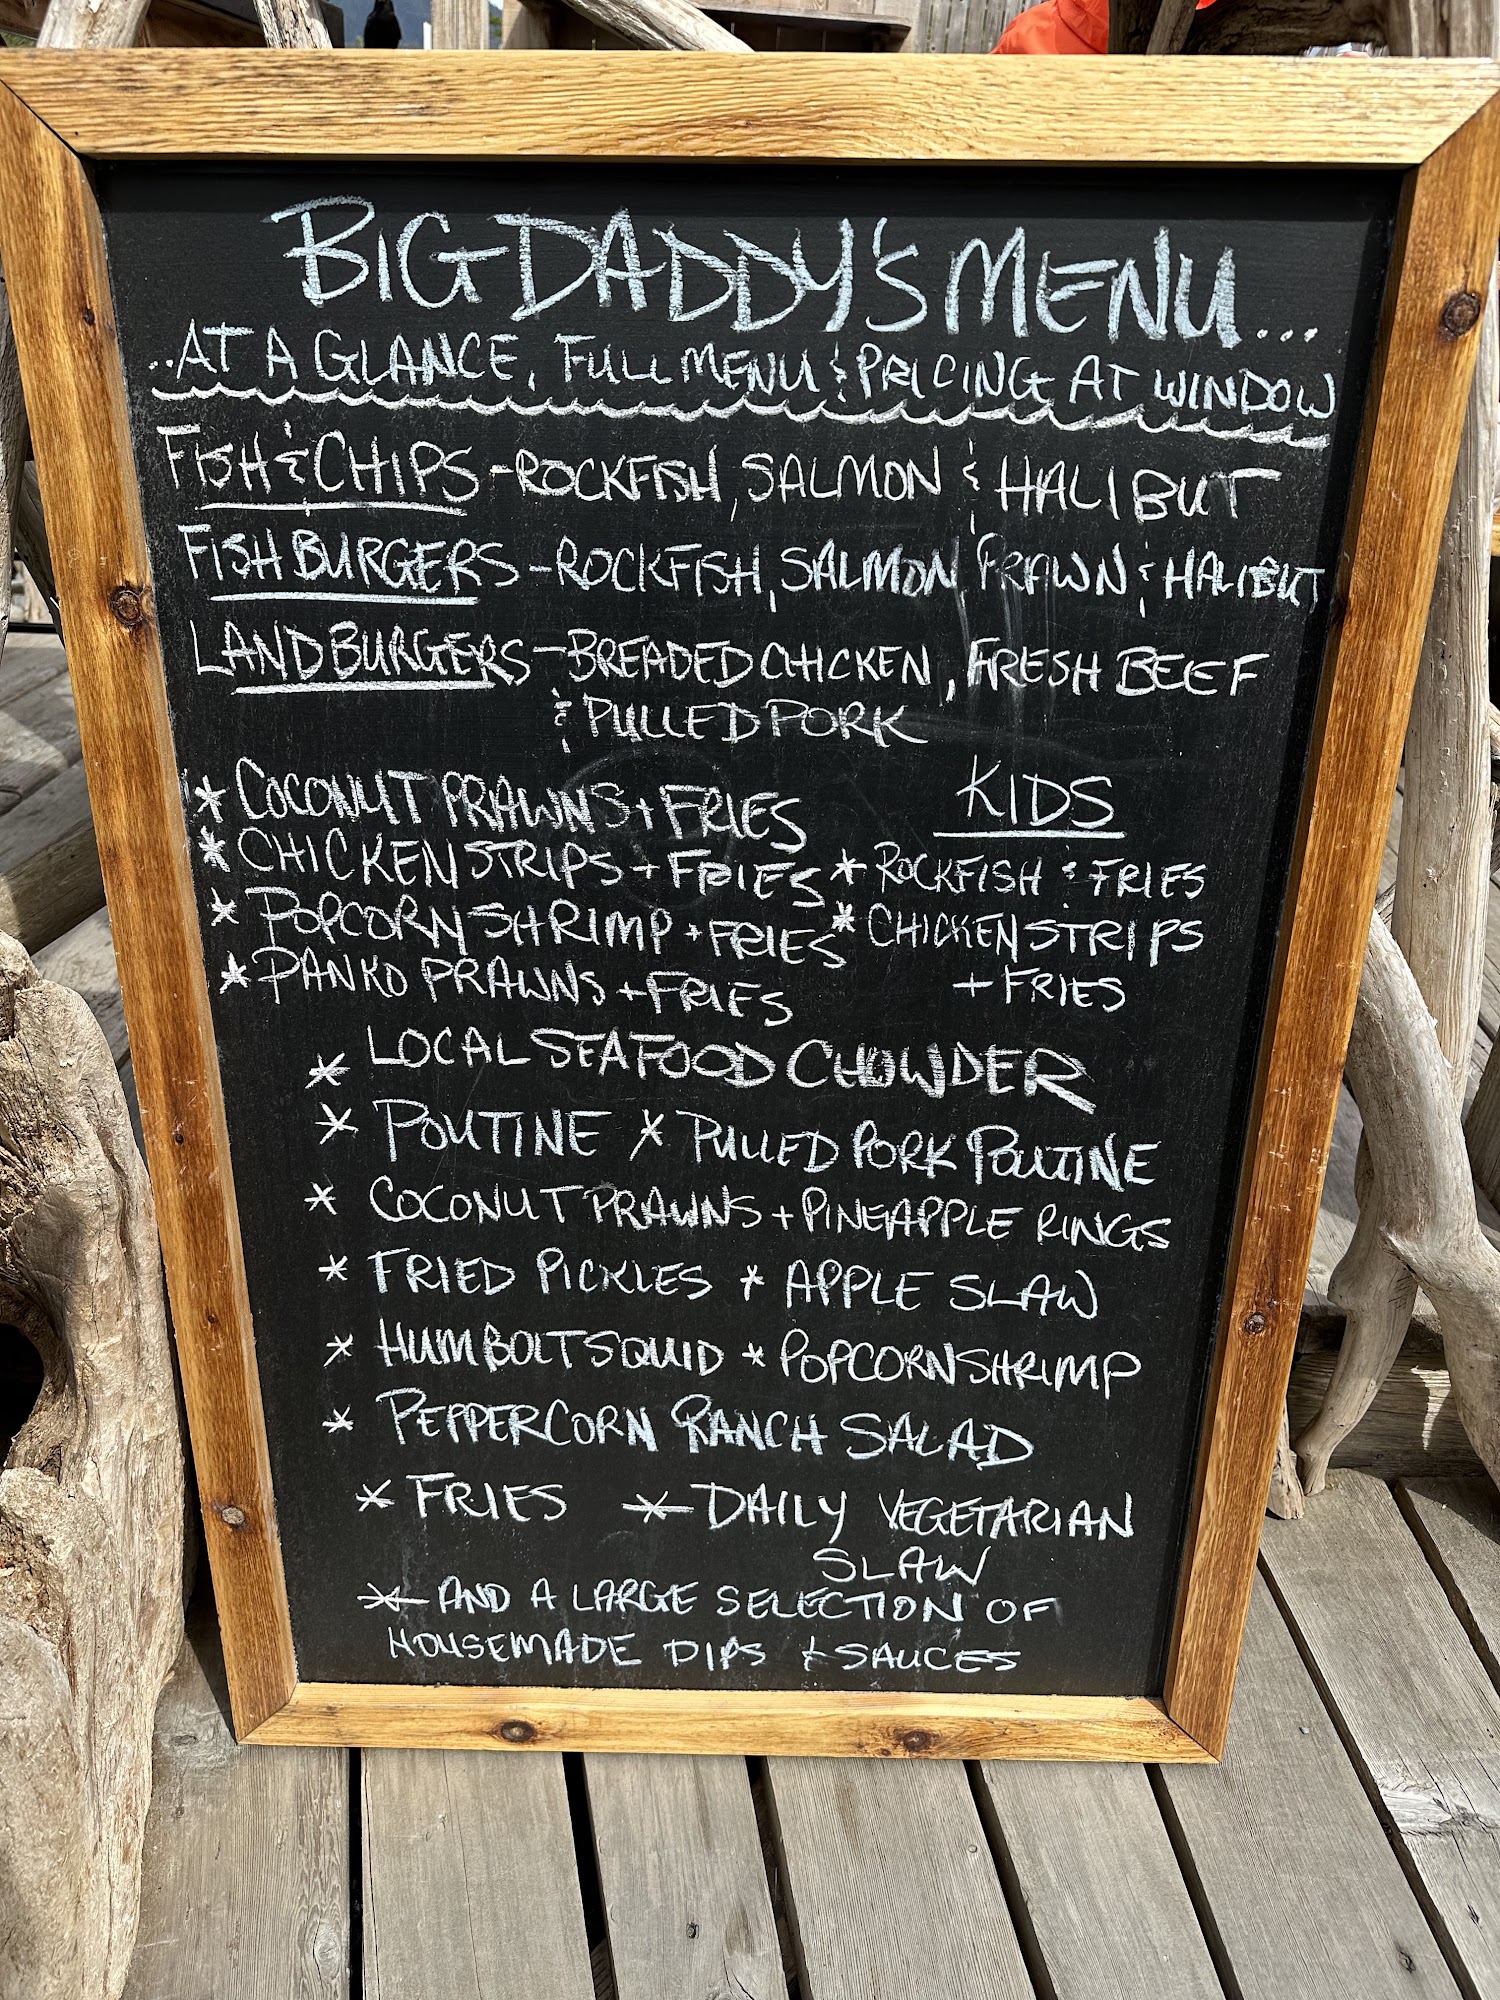 BIG DADDY'S MENU...
..AT A GLANCE, FULL MENU & PRICING AT WINDOW
FISH & CHIPS - ROCKFISH, SALMON & HALIBUT
FISH BURGERS - ROCKFISH, SALMON, PRAWN & HALIBUT
LAND BURGERS - BREADED CHICKEN, FRESH BEEF
& PULLED PORK
* COCONUT PRAWNS + FRIES
* CHICKEN STRIPS + FRIES
* POPCORN SHRIMP + FRIES
* PANKO PRAWNS + FRIES
KIDS
* ROCKFISH & FRIES
* CHICKEN STRIPS
+ FRIES
* LOCAL SEAFOOD CHOWDER
* POUTINE * PULLED PORK POUTINE
* COCONUT PRAWNS + PINEAPPLE RINGS
* FRIED PICKLES * APPLE SLAW
* HUMBOLT SQUID * POPCORN SHRIMP
* PEPPERCORN RANCH SALAD
* FRIES * DAILY VEGETARIAN
SLAW
* AND A LARGE SELECTION OF
HOUSEMADE DIPS & SAUCES